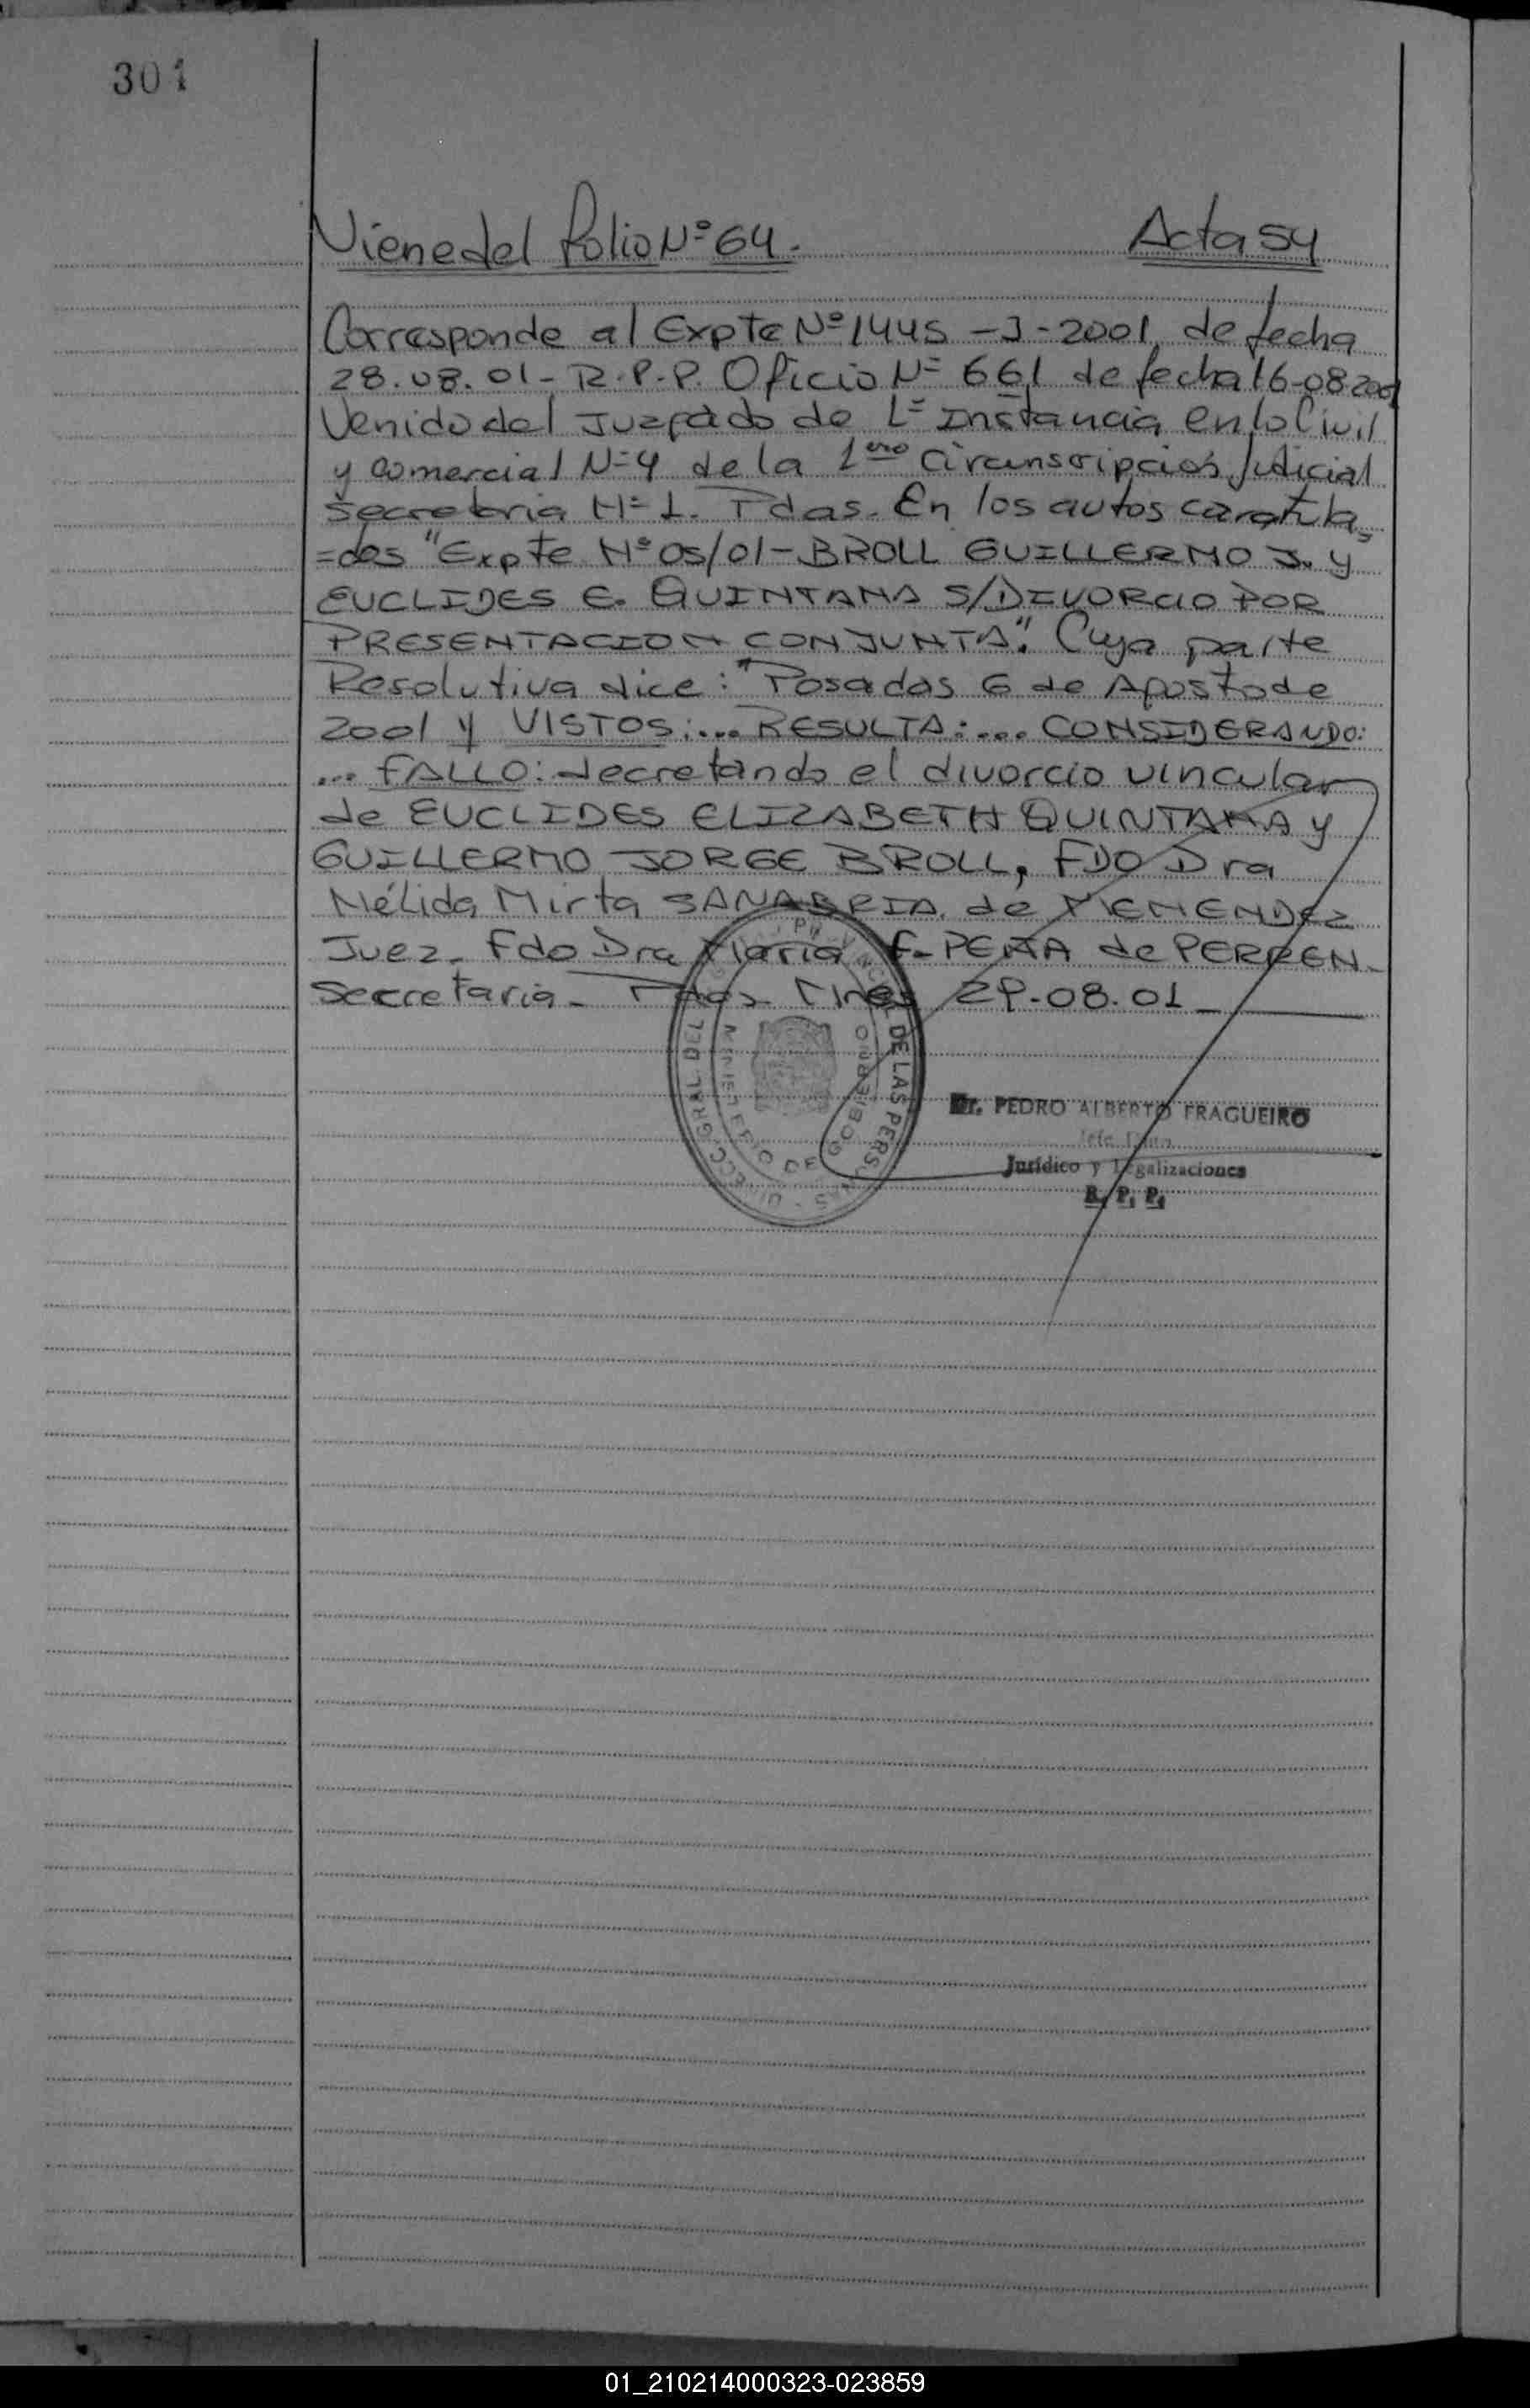 301
Viene del folio Nº 64.- Acta 54
Corresponde al Expte Nº 1445 -J- 2001, de fecha
28.08.01- R.P.P. Oficio Nº 661 de fecha 16-08 2001
Venido del Juzgado de 1º Instancia en lo Civil
y comercial Nº 4 de la 1era circunscripcios Judicial
secretaria Nº 1. Pdas. En los autos caratula=
=dos "Expte Nº 05/01- BROLL GUILLERMO J. y
EUCLIDES E. QUINTANA S/DIVORCIO POR
PRESENTACION CONJUNTA". Cuya parte
Resolutiva dice: "Posadas 6 de Agosto de
2001 y VISTOS:... RESULTA:... CONSIDERANDO:
... FALLO: decretando el divorcio vincular
de EUCLIDES ELIZABETH QUINTANA y
GUILLERMO JORGE BROLL, FDO Dra
Nélida Mirta SANABRIA de MENENDEZ
Juez. Fdo Dra Maria F. PEÑA de PERREN-
Secretaria- Pdas Mnes 29-08.01
DE LAS PERSONAS
MINISTERIO DE GOBIERNO
Dr. PEDRO ALBERTO FRAGUEIRO
Jefe Dpto.
Jurídico y Legalizaciones
R. P. P.
01_210214000323-023859